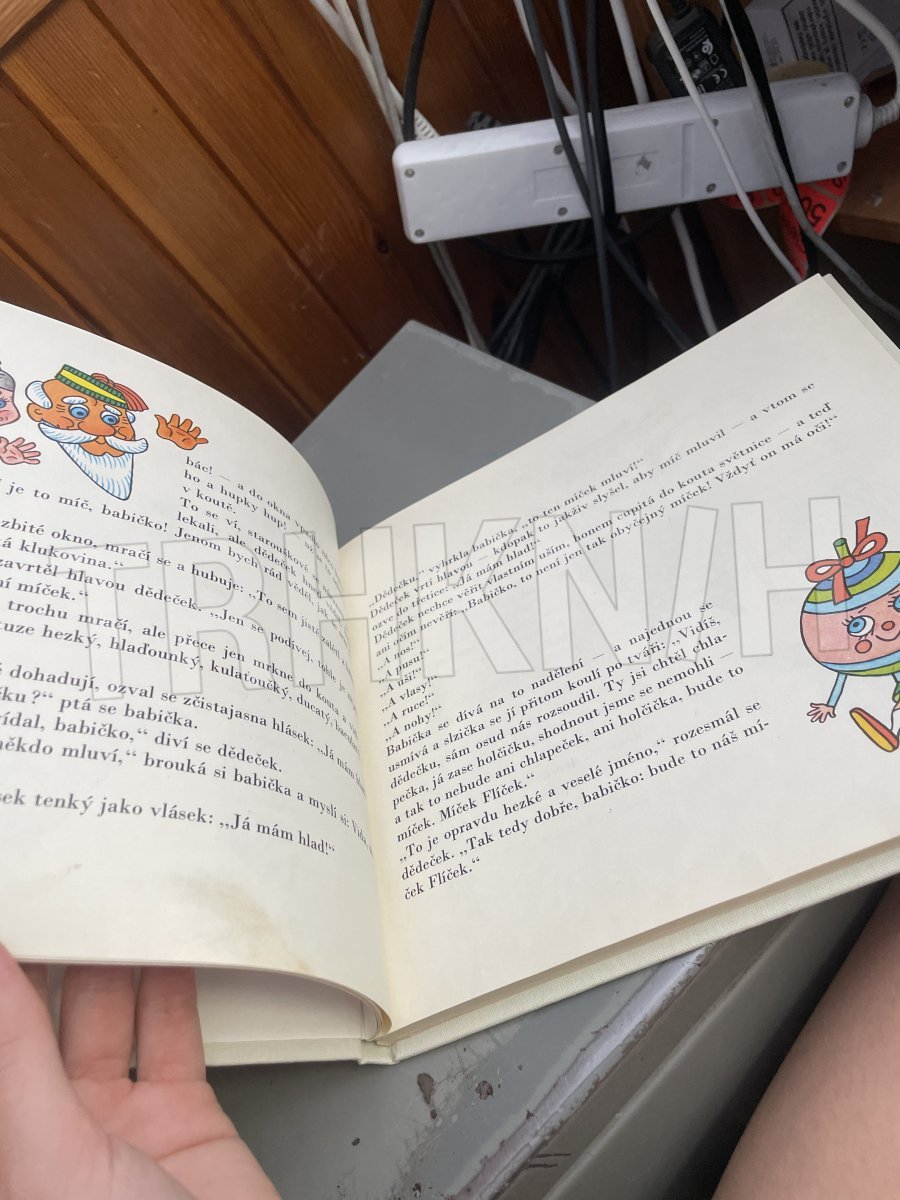 bác! — a do okna
ho a hupky hup!
v koutě.
je to míč, babičko!
To se ví, starouškové se
lekali, ale dědeček hned
Jenom bych rád věděl, jak
zbité okno, mračí se a hubuje: „To sem jistě
klukovina.“
zavrtěl hlavou dědeček. „Jen se podívej, tohle je
ní míček.“
trochu mračí, ale přece jen mrkne do kouta a
tuze hezký, hlaďounký, kulaťoučký, ducatý,
dohadují, ozval se zčistajasna hlásek: „Já mám
čku?“ ptá se babička.
vídal, babičko,“ diví se dědeček.
někdo mluví,“ brouká si babička a myslí si:
sek tenký jako vlásek: „Já mám hlad!“
„Dědečku,“ vyhrkla babička, „to ten míček mluví!“
Dědeček vrtí hlavou — kdopak to jakživ slyšel, aby míč mluvil — a vtom se
ozve do třetice: „Já mám hlad!“
Dědeček nechce věřit vlastním uším, honem cupitá do kouta světnice — a teď
ani očím nevěří: „Babičko, to není jen tak obyčejný míček! Vždyť on má oči!“
„A nos!“
„A pusu!“
„A uši!“
„A vlasy!“
„A ruce!“
„A nohy!“
Babička se dívá na to nadělení — a najednou se
usmívá a slzička se jí přitom koulí po tváři: „Vidíš,
dědečku, sám osud nás rozsoudil. Ty jsi chtěl chla-
pečka, já zase holčičku, shodnout jsme se nemohli —
a tak to nebude ani chlapeček, ani holčička, bude to
míček. Míček Flíček.“
„To je opravdu hezké a veselé jméno,“ rozesmál se
dědeček. „Tak tedy dobře, babičko: bude to náš mí-
ček Flíček.“
TRHKNIH